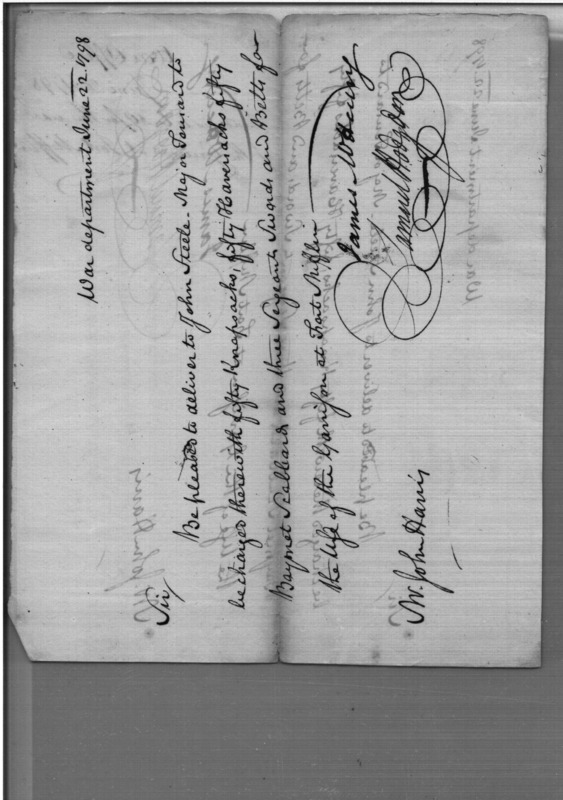 War department June 22. 1798
Sir,
Be pleased to deliver to John Steele - Major Tousard to
be charged therewith fifty Knapsacks, fifty Haversacks fifty
Bayonet Scabbards and three Sergeants Swords and Belts for
the Use of the Garrison at Fort Mifflin
James McHenry
Samuel Hodgdon
Mr. John Harris